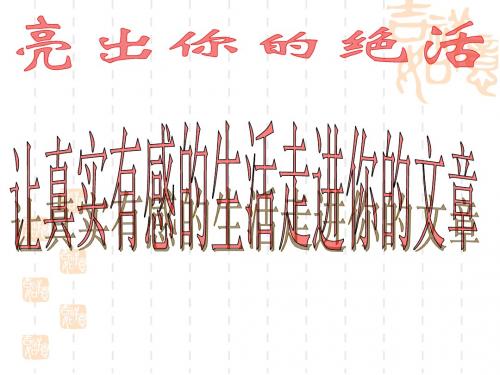 亮出你的绝活
让真实有感的生活走进你的文章